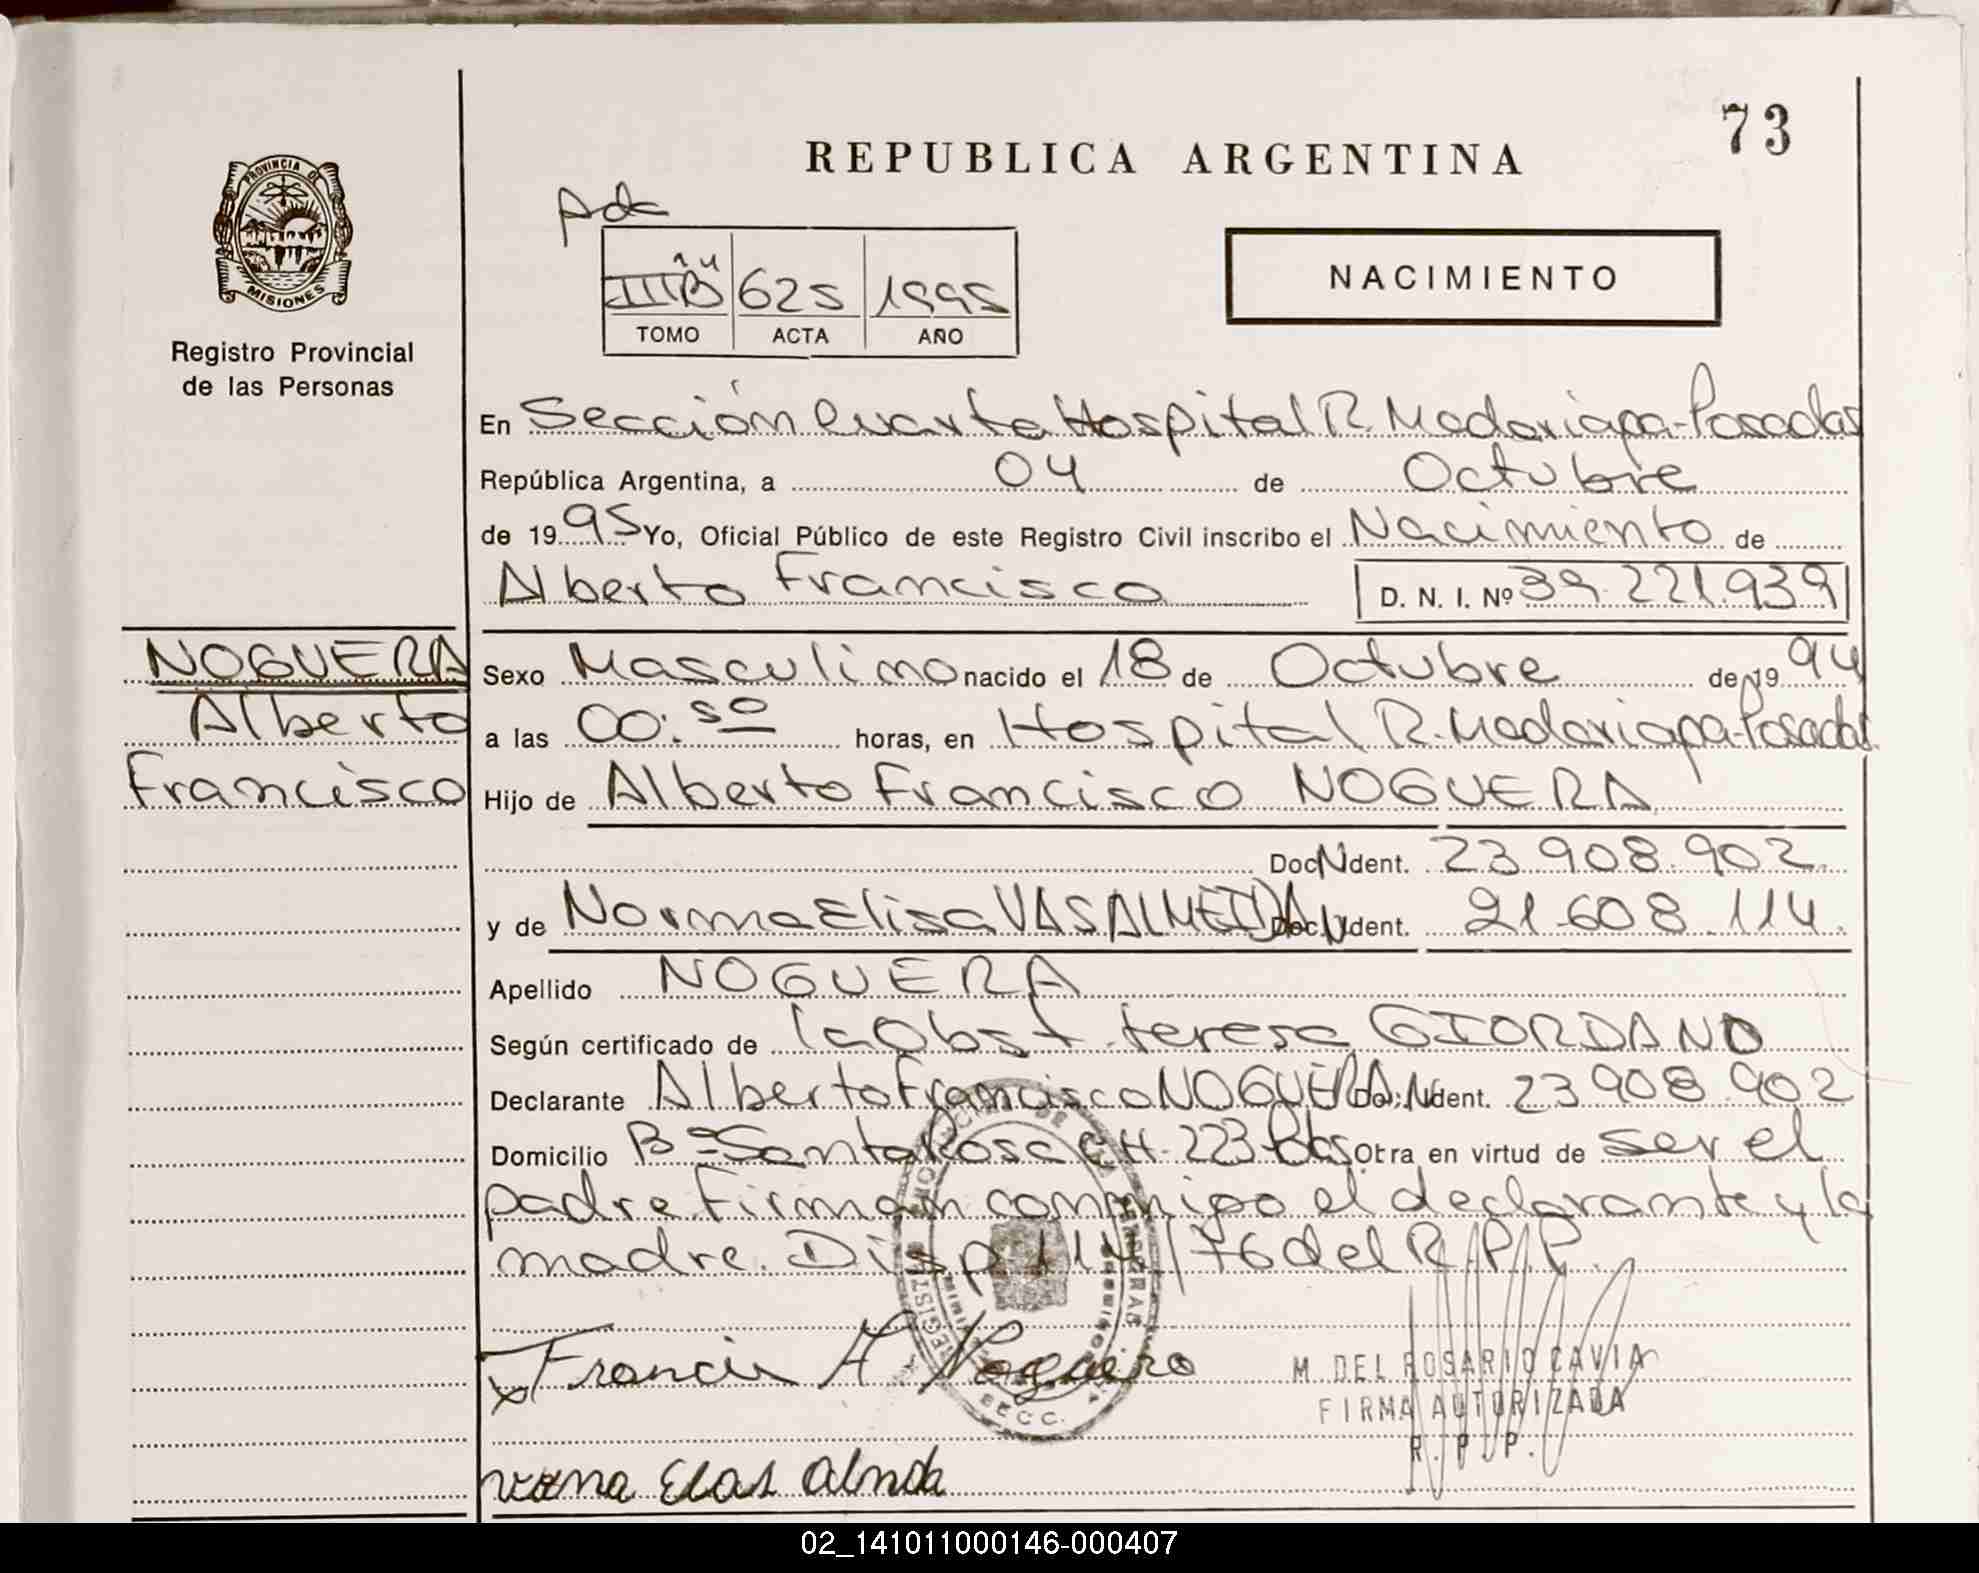 73
REPUBLICA ARGENTINA
PROVINCIA DE
MISIONES
Registro Provincial
de las Personas
Pdc
III "B" 625 1995
TOMO ACTA AÑO
NACIMIENTO
En Sección Cuarta Hospital R. Madariaga-Posadas
República Argentina, a 04 de Octubre
de 1995 Yo, Oficial Público de este Registro Civil inscribo el Nacimiento de
Alberto Francisco D. N. I. Nº 39.221.939
NOGUERA
Alberto
Francisco
Sexo Masculino nacido el 18 de Octubre de 1994
a las 00:50 horas, en Hospital R. Madariaga-Posadas
Hijo de Alberto Francisco NOGUERA
Doc. Ident. 23.908.902.
y de Norma Elisa VAS ALMEIDA Doc. Ident. 21.608.114.
Apellido NOGUERA
Según certificado de la Obst. teresa GIORDANO
Declarante Alberto Francisco NOGUERA Doc. Ident. 23.908.902
Domicilio Bº Santa Rosa CH. 223 Pdas Otra en virtud de ser el
padre. Firman conmigo el declarante y la
madre. Disp. 114/76 del R.P.P.
Francis A Noguera
M DEL ROSARIO CAVIA
FIRMA AUTORIZADA
R. P. P.
SECC.
02_141011000146-000407